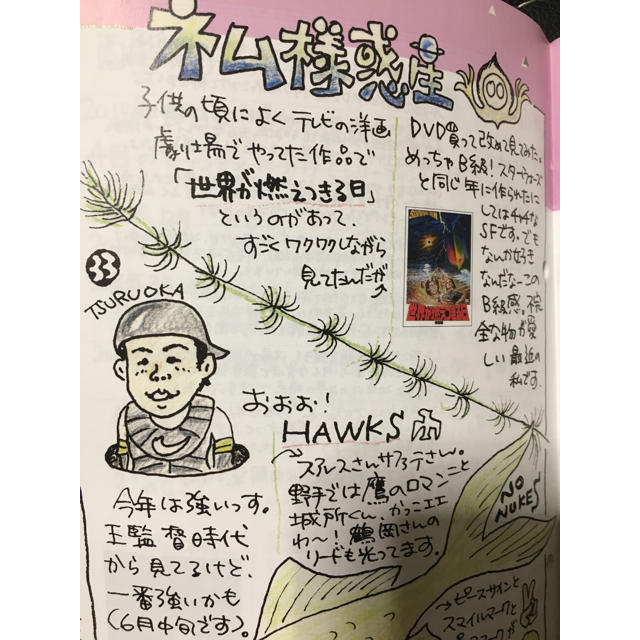 ネム様惑星
子供の頃によくテレビの洋画
劇場でやってた作品で
「世界が燃えつきる日」
というのがあって、
すごくワクワクしながら
見てたんだが
DVD買って改めて見てみた。
めっちゃB級!スターウォーズ
と同じ年に作られたに
してはチャチな
SFです。でも
なんか好き
なんだな〜この
B級感。不完
全な物が愛
しい最近の
私です。
世界が燃えつきる日
33
TSURUOKA
おおお!
HAWKS
スアレスさんサファテさん。
野手では鷹のロマンこと
城所くん、かっこエエ
わ〜!鶴岡さんの
リードも光ってます。
今年は強いっす。
王監督時代
から見てるけど、
一番強いかも
(6月中旬です)。
NO
NUKES
→ピースサインと
スマイルマークと